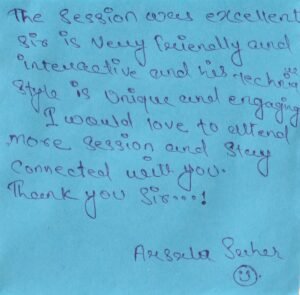 The Session was excellent
Sir is Very friendly and
interactive and his techni
Style is Unique and engaging
I would love to attend
more Session and Stay
Connected with you.
Thank you Sir....!